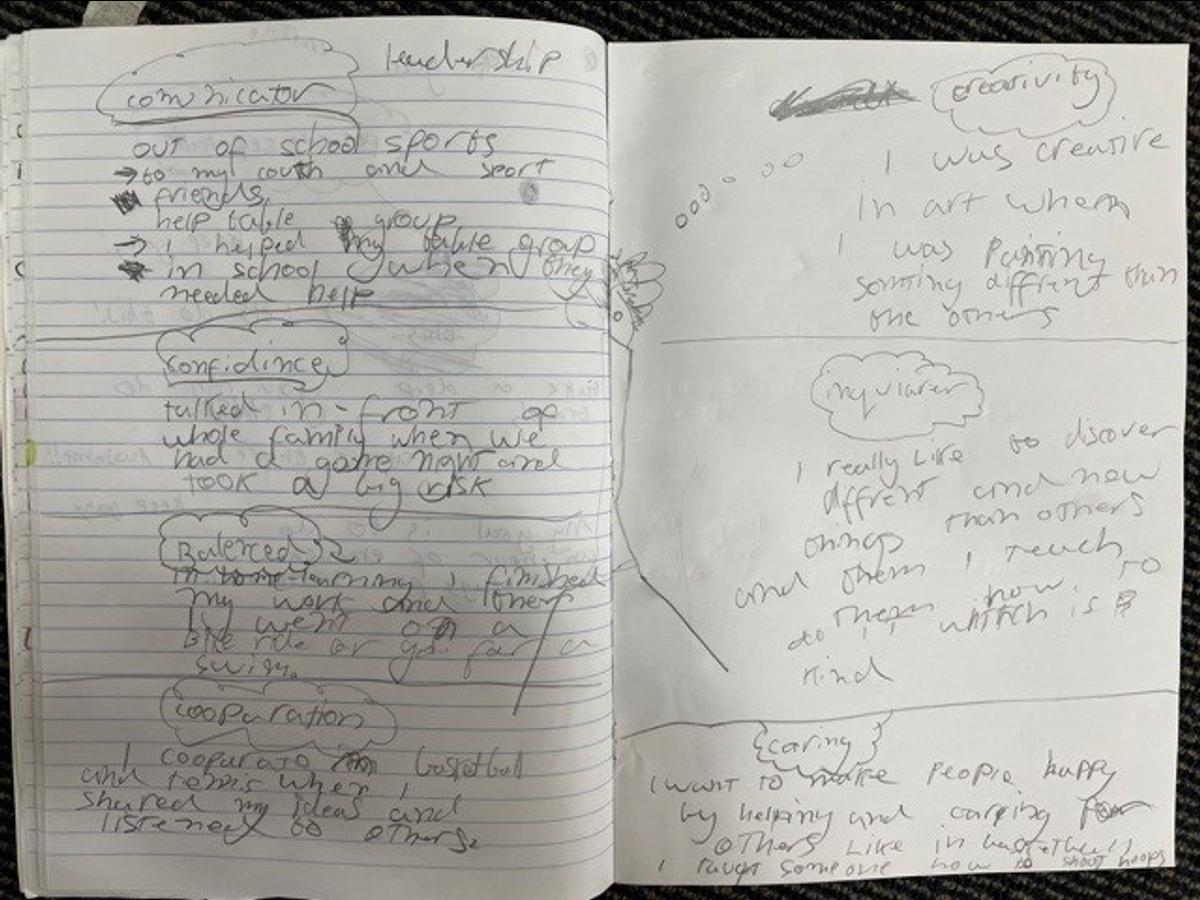 leadership
comunicator
out of school sports
→ to my coutch and sport
friends
help table group
→ I helped my table group
in school when they
needed help
confidince
talked in-front of
whole family when we
had a game night and
took a big risk
Balenced
in home learning I finished
my work and then
I went on a
Bike ride or go for a
swim.
cooparation
I cooparato in basketball
and tennis when I
shared my ideas and
listened to others
creativity
I was creative
in art when
I was painting
somting diffrent than
the others
inquiarer
I really like to discover
diffrent and new
things than others
and them I teach
them how to
do it whitch is
kind
caring
I want to make people happy
by helping and carring for
others like in basketball
I taught someone how to shoot hoops